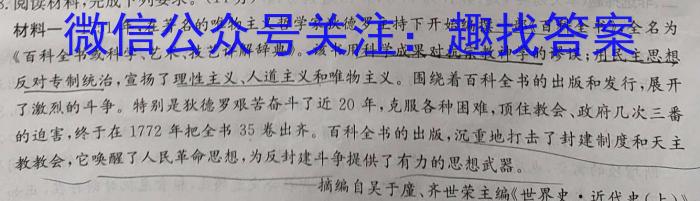 8.阅读材料,完成下列要求。
微信公众号关注：趣找答案
材料一 在著名的唯物主义哲学 德罗 持下开始 全名为
《百科全书 科学、艺术、技艺详解辞典》。 科学成果对 民主思想
反对专制统治,宣扬了理性主义、人道主义和唯物主义。围绕着百科全书的出版和发行,展开
了激烈的斗争。特别是狄德罗艰苦奋斗了近 20 年,克服各种困难,顶住教会、政府几次三番
的迫害,终于在 1772 年把全书 35 卷出齐。百科全书的出版,沉重地打击了封建制度和天主
教教会,它唤醒了人民革命思想,为反封建斗争提供了有力的思想武器。
摘编自吴于廑、齐世荣主编《世界史·近代史(上)》